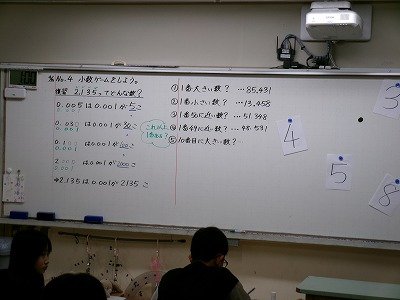 No.4 小数ゲームをしよう。
復習 2.135ってどんな数?
0.005は0.001が5こ
0.030は0.001が30こ
0.001
0.100は0.001が100こ
0.001
2.000は0.001が2000こ
0.001
→2.135は0.001が2135こ
①1番大きい数? …85.431
②1番小さい数? …13.458
③1番50に近い数? …51.348
④1番49に近い数? …48.531
⑤10番目に大きい数?…
3
4
5
8